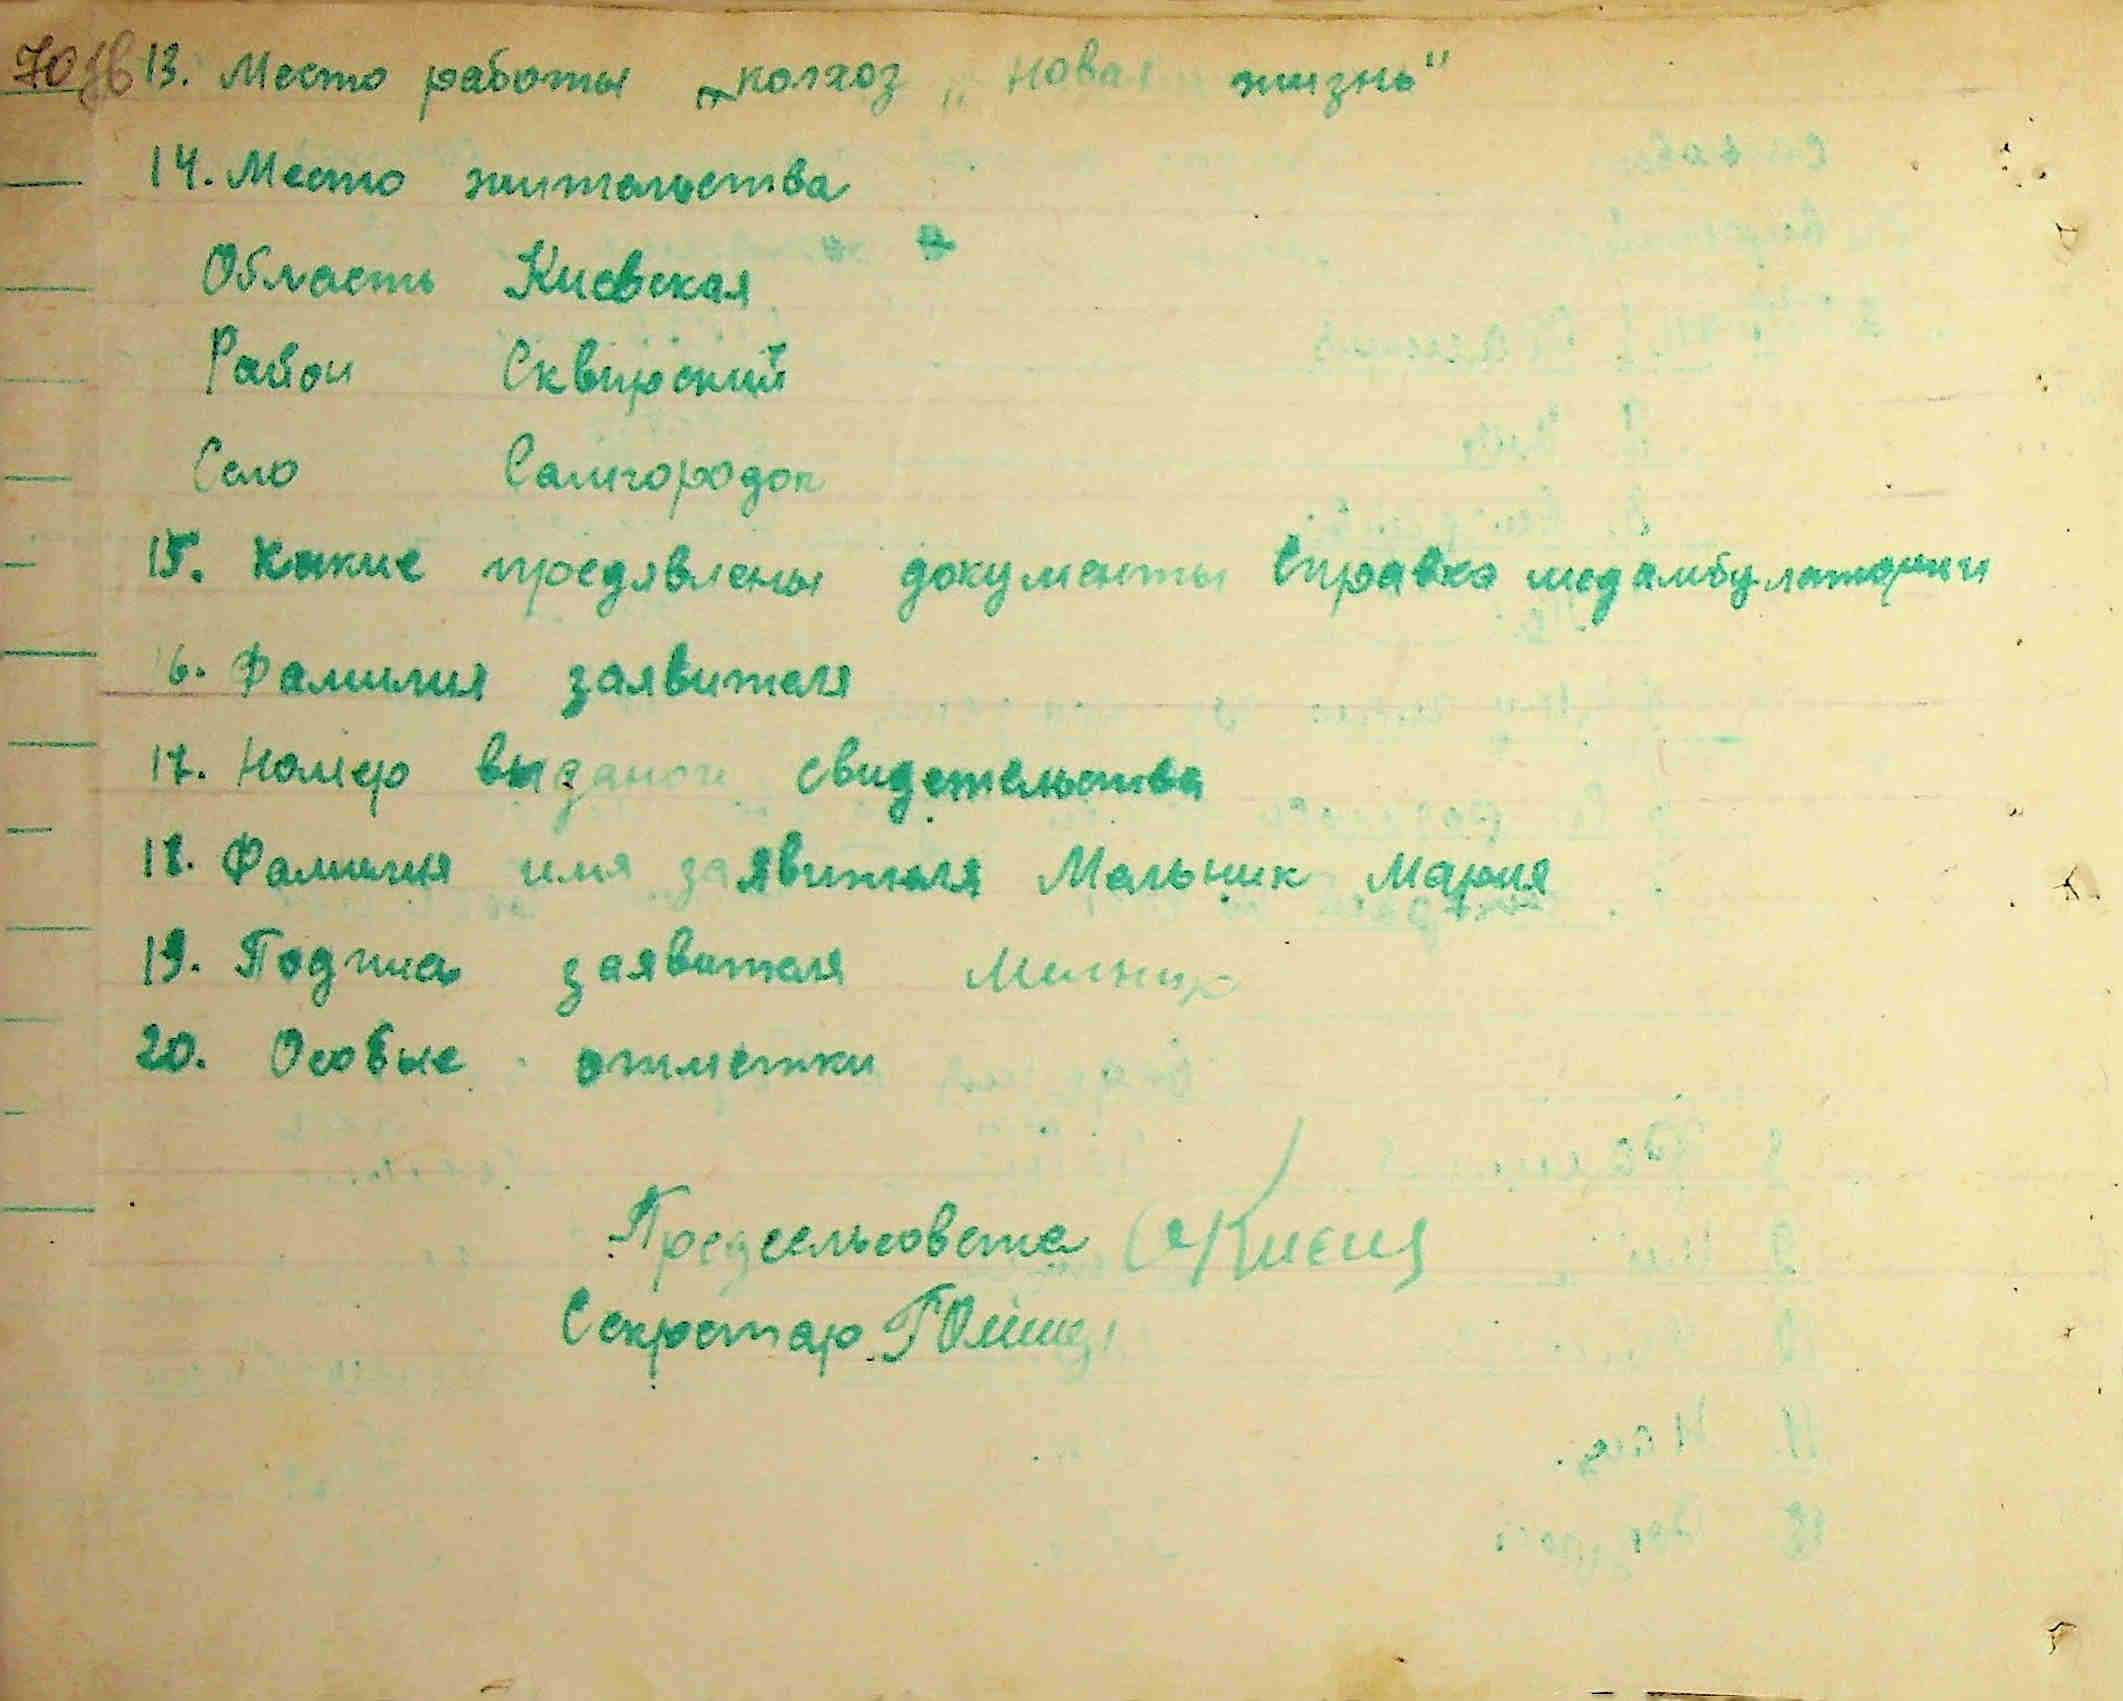 70 об 13. Место работы колхоз „ новая жизнь"
14. Место жительства
Область Киевская
Район Сквирский
Село Самгородок
15. Какие предявлены документы Справка медамбулатории
16. Фамилия заявителя
17. Номер выданого свидетельства
18. Фамилия имя заявителя Мельник Мария
19. Подпись заявителя Мельник
20. Особые отметки
Предсельсовета
Секретар